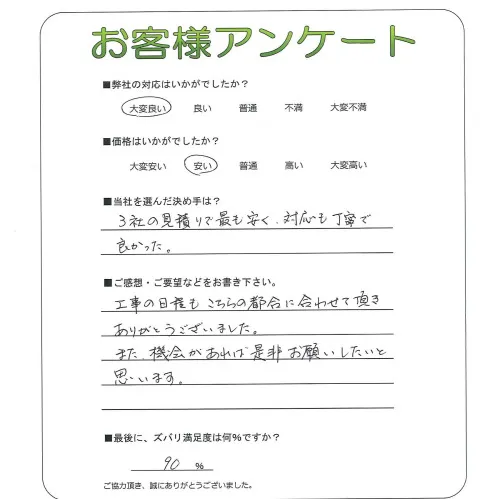 お客様アンケート
■弊社の対応はいかがでしたか？
大変良い 良い 普通 不満 大変不満
■価格はいかがでしたか？
大変安い 安い 普通 高い 大変高い
■当社を選んだ決め手は？
3社の見積りで最も安く、対応も丁寧で
良かった。
■ご感想・ご要望などをお書き下さい。
工事の日程も こちらの都合に合わせて頂き
ありがとうございました。
また、機会があれば是非お願いしたいと
思います。
■最後に、ズバリ満足度は何％ですか？
90 ％
ご協力頂き、誠にありがとうございました。